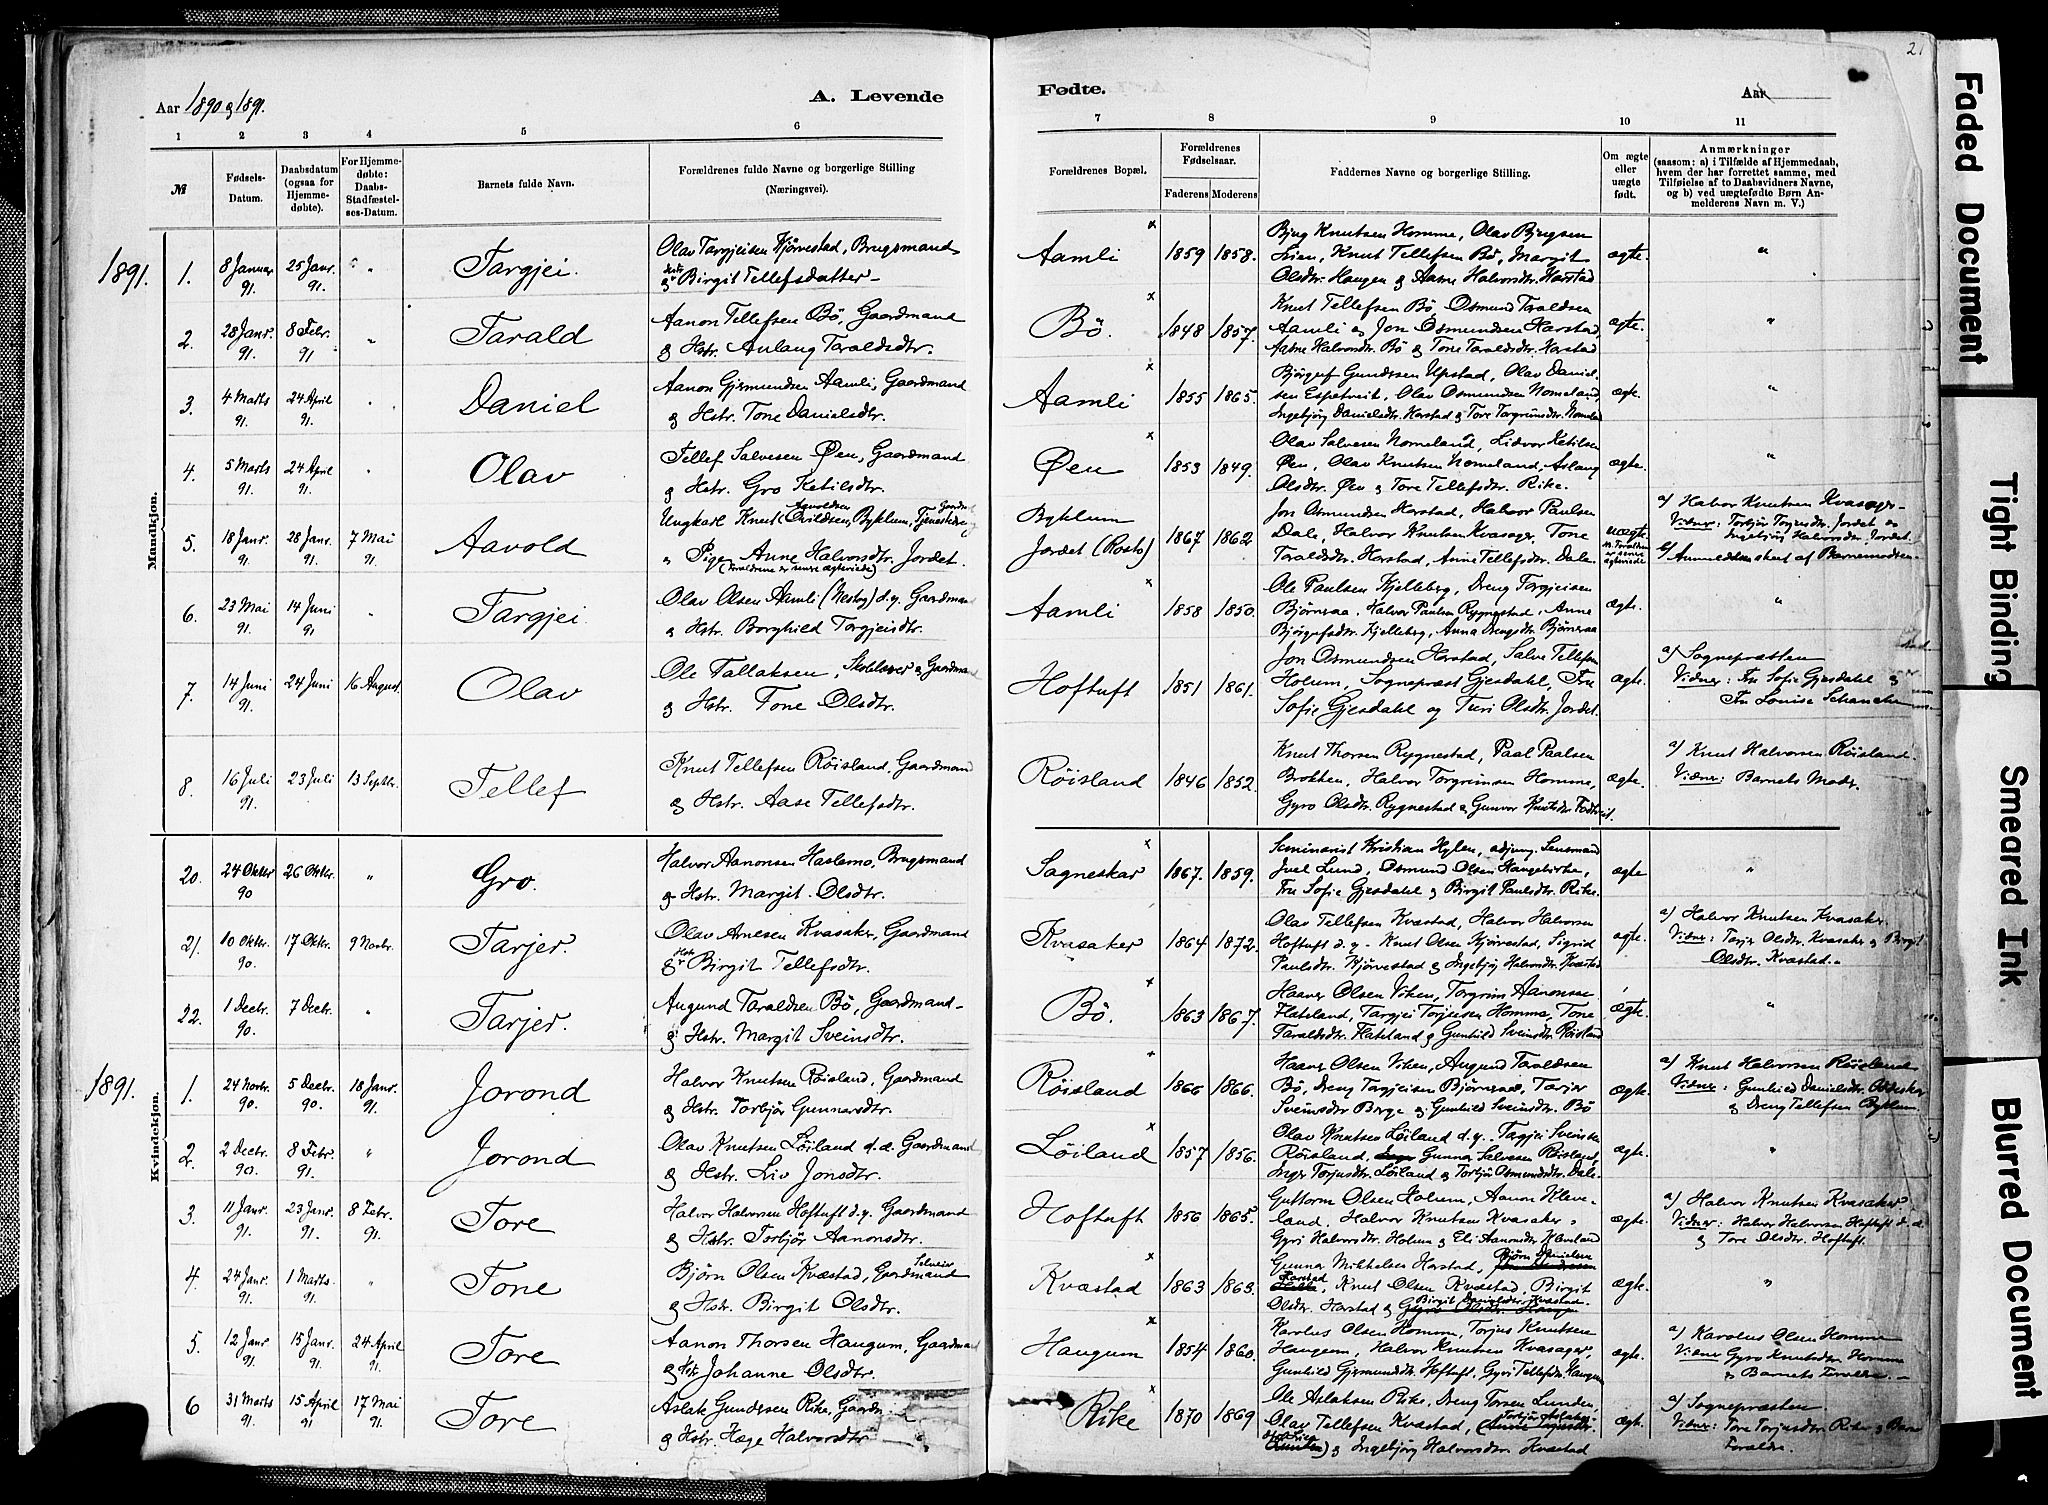 21
Aar 1890 og 1891.
A. Levende
Fødte.
Aar
1 2 3 4 5 6
7 8 9 10 11
№
Fødsels-Datum.
Daabsdatum (ogsaa for Hjemmedøbte).
For Hjemmedøbte: Daabs-Stadfæstelses-Datum.
Barnets fulde Navn.
Forældrenes fulde Navne og borgerlige Stilling
(Næringsvei).
Forældrenes Bopæl.
Forældrenes Fødselsaar.
Faderens Moderens
Faddernes Navne og borgerlige Stilling.
Om ægte eller uægte født.
Anmærkninger
(saasom: a) i Tilfælde af Hjemmedaab, hvem der har forrettet samme, med Tilføielse af to Daabsvidners Navne, og b) ved uægtefødte Børn Anmelderens Navn m. V.)
Mandkjøn.
1891. 1. 8 Januar 91. 25 Janr. 91. " Targjei.
Olav Targjeisen Kjørvestad, Brugsmand
og Hstr Birgit Tellefsdatter
Aamli 1859 1858.
Bjug Knutsen Homme, Olav Bjugsen
Lien, Knut Tellefsen Bø, Margit
Olsdtr. Haugen og Aasne Halvorsdtr. Harstad
ægte. "
2. 28 Janr. 91. 8 Febr. 91 " Tarald
Aanon Tellefsen Bø, Gaardmand
og Hstr. Aulaug Taraldsdtr.
Bø. 1848 1857.
Knut Tellefsen Bø, Osmund Taraldsen
Aamli og Jon Osmundsen Harstad,
Aasne Halvorsdtr. Bø og Tone Taraldsdtr. Harstad
ægte. "
3. 4 Marts 91. 24 April 91. " Daniel
Aanon Gjermundsen Aamli, Gaardmand
og Hstr. Tone Danielsdtr.
Aamli 1855 1865.
Bjørguf Gundersen Upstad, Olav Daniel-
sen Espetveit, Olav Osmundsen Nomeland,
Ingebjørg Danielsdtr. Harstad og Tore Torgrimsdtr. Nomeland
ægte. "
4. 5 Marts 91. 24 April 91. " Olav
Tellef Salvesen Øen, Gaardmand
og Hstr. Gro Ketilsdtr.
Øen 1853 1849.
Olav Salvesen Nomeland, Lidvor Ketilsen
Øen, Olav Knutsen Nomeland, Aslaug
Olsdtr. Øen og Tore Tellefsdtr. Rike.
ægte. "
5. 18 Janr. 91. 28 Janr. 91. 7 Mai 91. Aavold
Ungkarl Knut Aavoldsen, Byklum, Tjenestedreng
og Pige Anne Halvorsdtr. Jordet.
(Forældrene er senere ægteviede)
Byklum
Jordet (Rosto) 1867 1862
Jon Osmundsen Harstad, Halvor Paulsen
Dale, Halvor Knutsen Kvasager, Tone
Taraldsdtr. Harstad, Anne Tellefsdtr. Dale
uægte.
a) Halvor Knutsen Kvasager
Vidner: Torbjør Torjusdtr. Jordet og
Ingebjørg Halvorsdtr. Jordet.
b) Anmeldelsen skeet af Barnemoderen
6. 23 Mai 91. 14 Juni 91 " Targjei
Olav Olsen Aamli (Nestog) d.y. Gaardmand
og Hstr. Borghild Torgjeisdtr.
Aamli 1858 1850.
Ole Paulsen Kjelleberg, Dreng Torgjeisen
Bjørnraa, Halvor Paulsen Rygnestad, Anne
Bjørgufsdtr. Kjelleberg, Anna Drengsdtr. Bjørnraa
ægte. "
7. 14 Juni 91. 24 Juni 16 August. Olav
Ole Tallaksen, Skolelærer og Gaardmand
og Hstr. Tone Olsdtr.
Hoftuft 1851 1861.
Jon Osmundsen Harstad, Salve Tellefsen
Holum, Sognepræst Gjesdahl, Fru
Sofie Gjesdahl og Turi Olsdtr. Jordet.
ægte.
a) Sognepræsten
Vidner: Fru Sofie Gjesdahl og
Fru Louise Schanche
8. 16 Juli 91. 23 Juli 13 Septbr. Tellef
Knut Tellefsen Røisland, Gaardmand
og Hstr. Aase Tellefsdtr.
Røisland 1846 1852.
Knut Thorsen Rygnestad, Paal Paalsen
Brokken, Halvor Torgrimsen Homme,
Gyro Olsdtr. Rygnestad og Gunvor Knutsdtr.
ægte.
a) Knut Halvorsen Røisland.
Vidner: Barnets Moder.
Kvindekjøn.
20. 24 Oktbr 90 26 Oktbr. " Gro.
Halvor Aanonsen Haslemo, Brugsmand
og Hstr. Margit Olsdtr.
Sagneskar 1867. 1859.
Seminarist Kristian Hylen, adjung. Lensmand
Juel Lund, Osmund Olsen Haugebirke,
Fru Sofie Gjesdahl og Birgit Paulsdtr. Rike.
ægte "
21. 10 Oktbr. 90. 17 Oktbr. 9 Novbr. Tarjer.
Olav Arnesen Kvasaker, Gaardmand
og Hstr Birgit Tellefsdtr.
Kvasaker 1864 1872.
Olav Tellefsen Kvæstad, Halvor Halvorsen
Hoftuft d.y. Knut Olsen Kjørvestad, Sigrid
Paulsdtr. Kjørvestad og Ingebjørg Halvorsdtr. Kvæstad
ægte.
a) Halvor Knutsen Kvasaker.
Vidner: Tarjer Olsdtr. Kvasaker og Birgit
Olsdtr. Kvæstad.
22. 1 Decbr. 90. 7 Decbr. " Tarjer.
Augund Taraldsen Bø, Gaardmand
og Hstr. Margit Sveinsdtr.
Bø. 1863 1867.
Haaver Olsen Viken, Torgrim Aanonsen
Flateland, Targjei Torjusen Homme, Tone
Taraldsdtr. Flateland og Gunhild Sveinsdtr. Røisland
Ægte. "
1891. 1. 24 Novbr. 90. 5 Decbr. 90. 18 Janr. 91. Jorond
Halvor Knutsen Røisland, Gaardmand
og Hstr. Torbjør Gunnarsdtr.
Røisland 1866 1866.
Haaver Olsen Viken, Augund Taraldsen
Bø, Dreng Targjeisen Bjørnraa, Tarjer
Sveinsdtr Berge og Gunhild Sveinsdtr. Bø
ægte.
a) Knut Halvorsen Røisland
Vidner: Gunhild Danielsdtr.
og Dreng Tellefsen Byklum.
2. 2 Decbr. 90. 8 Febr. 91. " Jorond
Olav Knutsen Løiland d.æ. Gaardmand
og Hstr. Liv Jonsdtr.
Løiland 1857 1856.
Olav Knutsen Løiland d.y. Targjei Sveinsen
Røisland, Gunnar Salvesen Røisland,
Inger Torjusdtr. Løiland og Torbjør Osmundsdtr. Dale
ægte. "
3. 11 Janr. 91. 23 Janr. 91. 8 Febr. 91. Tore
Halvor Halvorsen Hoftuft d.y. Gaardmand
og Hstr. Torbjør Aanonsdtr.
Hoftuft 1856 1865.
Guttorm Olsen Holum, Aanon Kleve-
land, Halvor Knutsen Kvasaker,
Gyri Halvorsdtr. Holum og Eli Aanonsdtr Kleveland
ægte.
a) Halvor Knutsen Kvasaker
Vidner: Halvor Halvorsen Hoftuft d.æ.
og Tore Olsdtr. Hoftuft.
4. 24 Janr. 91. 1 Marts. " Tone
Bjørn Olsen Kvæstad, Gaardmand Selveier
og Hstr. Birgit Olsdtr.
Kvæstad 1863 1863.
Gunnar Mikkelsen Harstad, Bjørn Danielsen
Harstad, Knut Olsen Kvæstad, Birgit
Olsdtr. Harstad og Birgit Danielsdtr. Kvæstad.
ægte. "
5. 12 Janr. 91. 15 Janr. 91. 24 April 91. Tore
Aanon Thorsen Haugum, Gaardmand
og Hstr Johanne Olsdtr.
Haugum 1854 1860.
Karolus Olsen Homme, Torjus Knutsen
Haugum, Halvor Knutsen Kvasager,
Gunhild Gjermundsdtr Hoftuft, Gyri Tellefsdtr. Haugum
ægte.
a) Karolus Olsen Homme
Vidner Gyro Knutsdtr Homme
og Barnets Forældre.
6 31 Marts 91. 15 April 91 17 Mai 91. Tore
Aslak Gundersen Rike, Gaardm
og Hstr. Hæge Halvorsdtr
Rike 1870 1869
Ole Aslaksen Rike, Dreng Torsen Lunden,
Olav Tellefsen Kvæstad,
og Ingebjørg Halvorsdtr. Kvæstad
ægte.
a) Sognepræsten.
Vidner: Tore Torjusdtr. Rike og Barnets
Forældre.
Faded Document
Tight Binding
Smeared Ink
Blurred Document